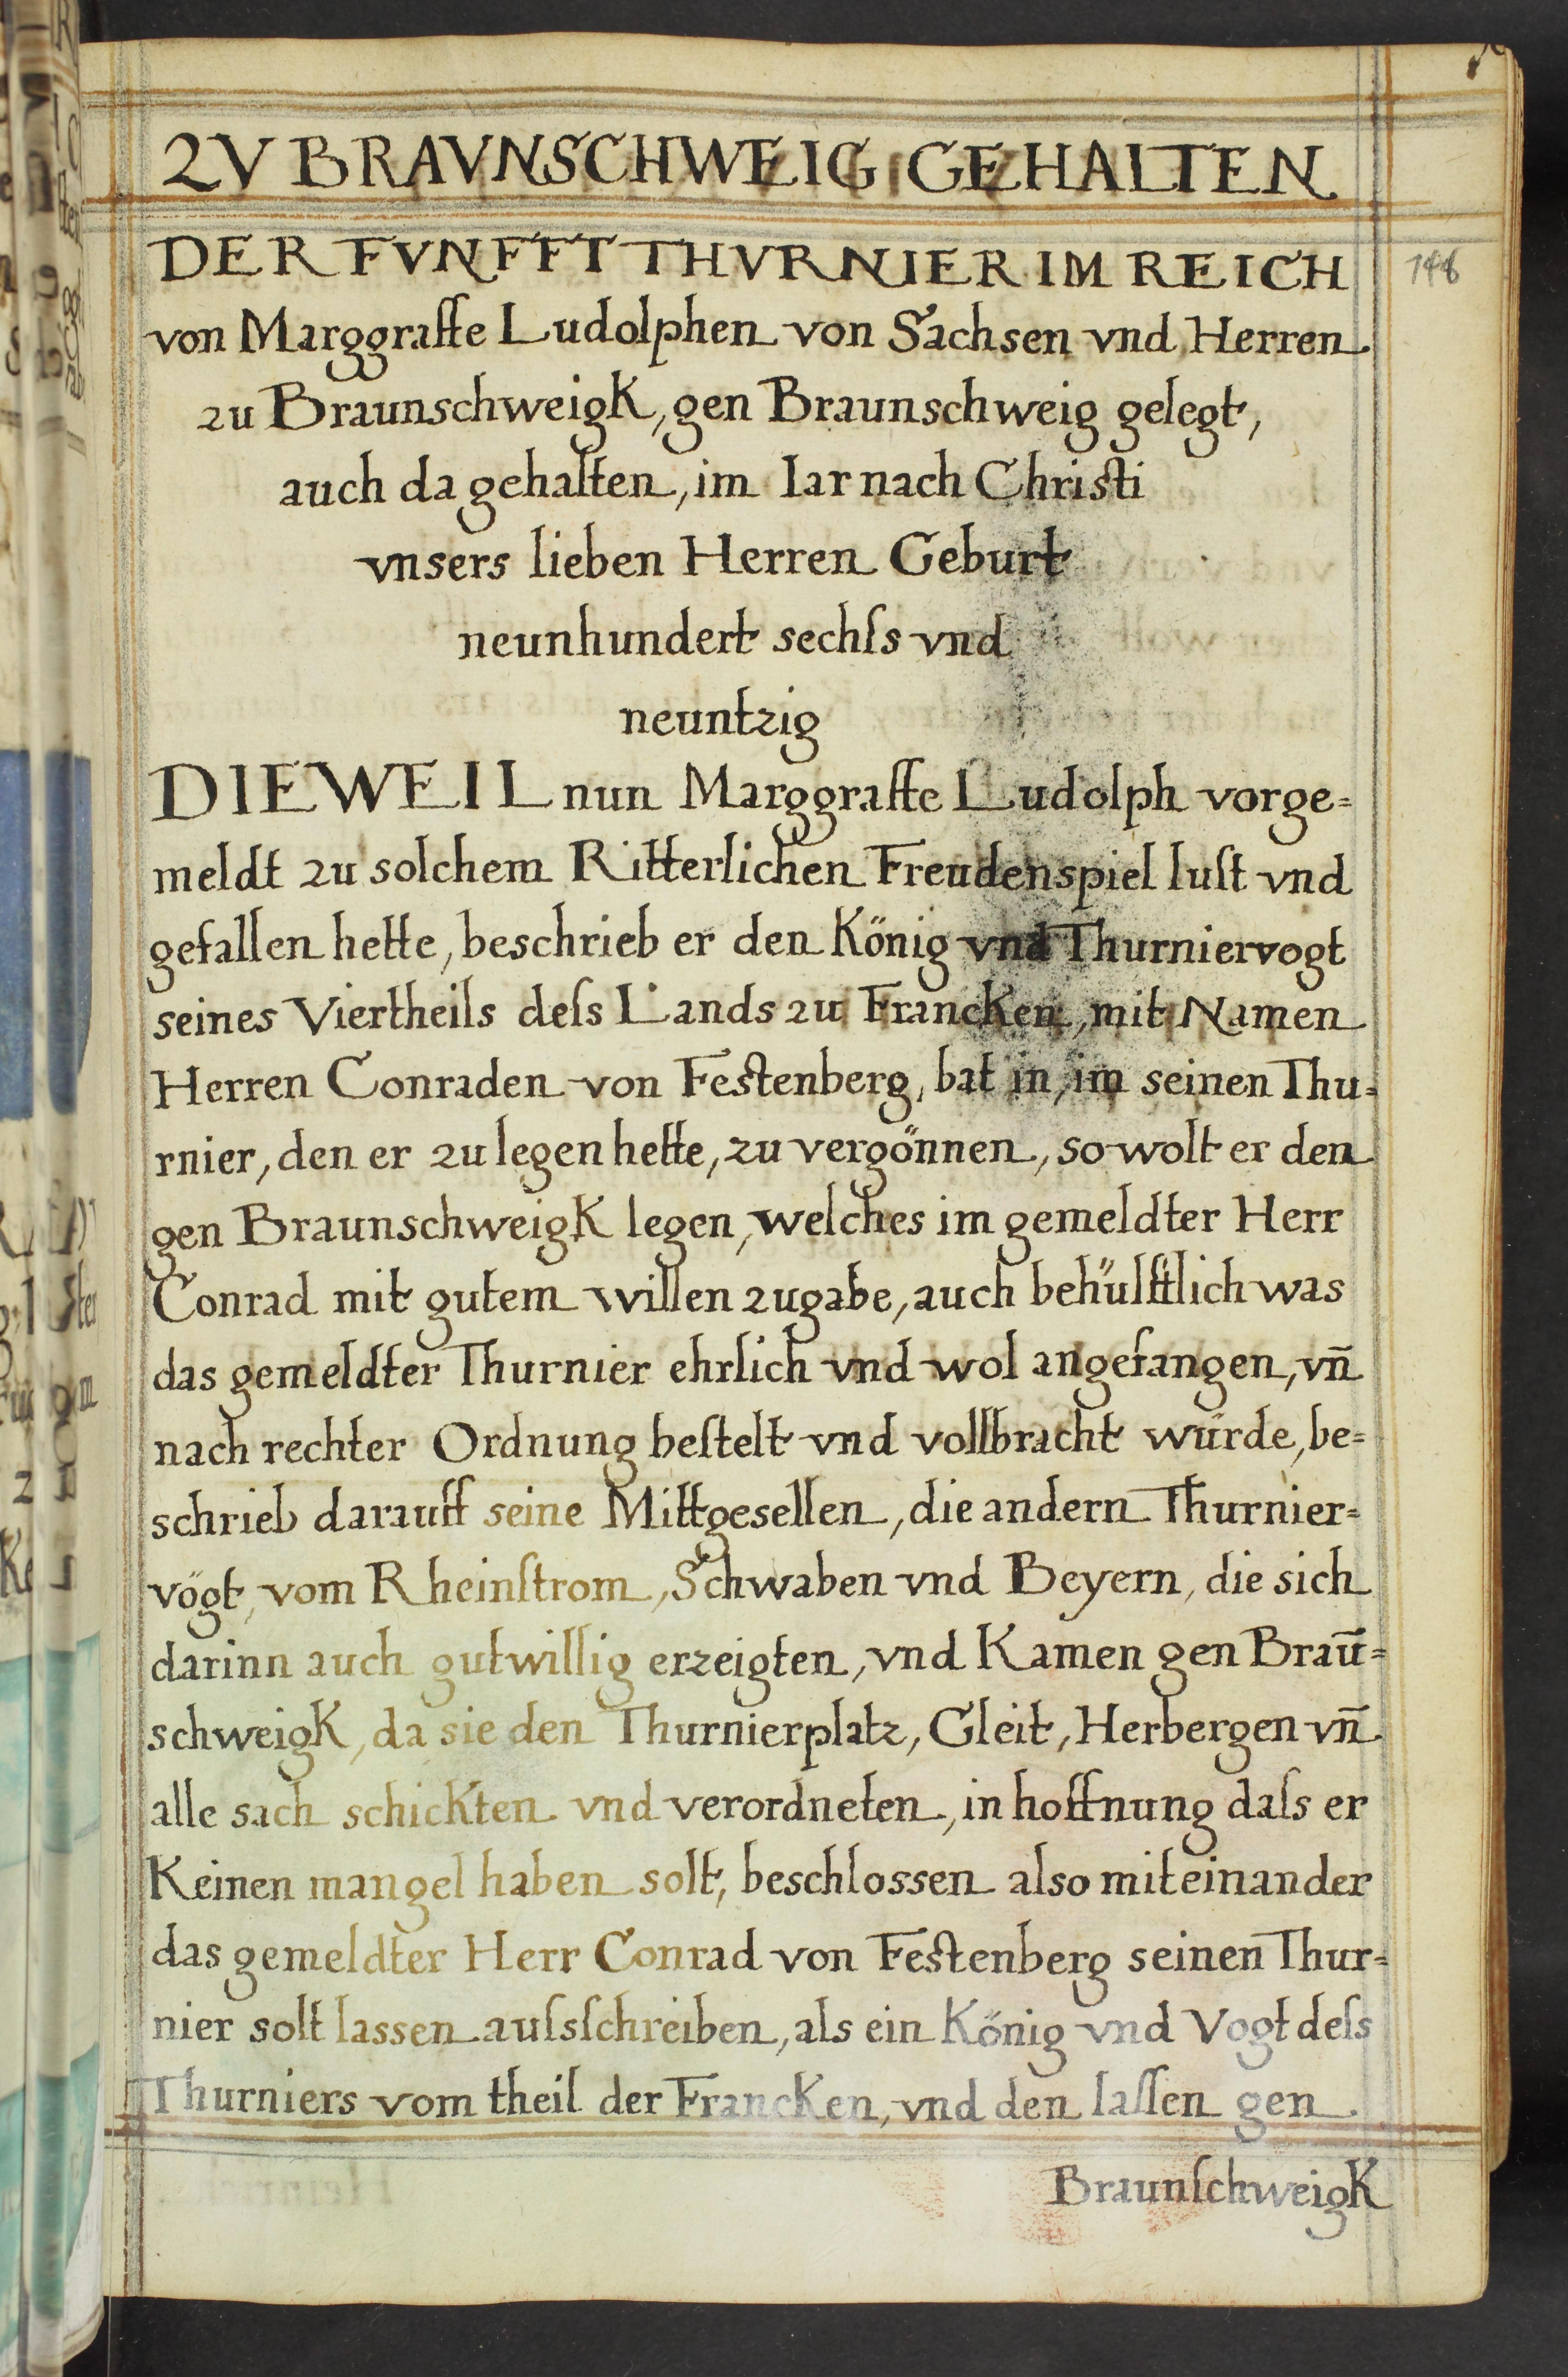 ZV BRAVNSCHWEIG GEHALTEN
DER FVNFFT THVRNIER IM REICH
148
von Marggraffe Ludolphen von Sachsen vnd Herren
zu Braunschweigk, gen Braunschweig gelegt,
auch da gehalten, im Iar nach Christi
vnsers lieben Herren Geburt
neunhundert sechſs vnd
neuntzig
DIEWEIL nun Marggraffe Ludolph vorge=
meldt zu solchem Ritterlichen Freudenspiel luſt vnd
gefallen hette, beschrieb er den König vnd Thurniervogt
seines Viertheils deſs Lands zu Francken, mit Namen
Herren Conraden von Festenberg, bat in, im seinen Thu=
rnier, den er zu legen hette, zu vergönnen, so wolt er den
gen Braunschweigk legen, welches im gemeldter Herr
Conrad mit gutem willen zugabe, auch behülfflich was
das gemeldter Thurnier ehrlich vnd wol angefangen, vn̄
nach rechter Ordnung beſtelt vnd vollbracht würde, be=
schrieb darauff seine Mittgesellen, die andern Thurnier=
vögt, vom Rheinſtrom, Schwaben vnd Beyern, die sich
darinn auch gutwillig erzeigten, vnd Kamen gen Braū=
schweigk, da sie den Thurnierplatz, Gleit, Herbergen vn̄
alle sach schickten vnd verordneten, in hoffnung daſs er
Keinen mangel haben solt, beschlossen also miteinander
das gemeldter Herr Conrad von Festenberg seinen Thur=
nier solt lassen auſsſchreiben, als ein König vnd Vogt deſs
Thurniers vom theil der Francken, vnd den laſſen gen
Braunſchweigk